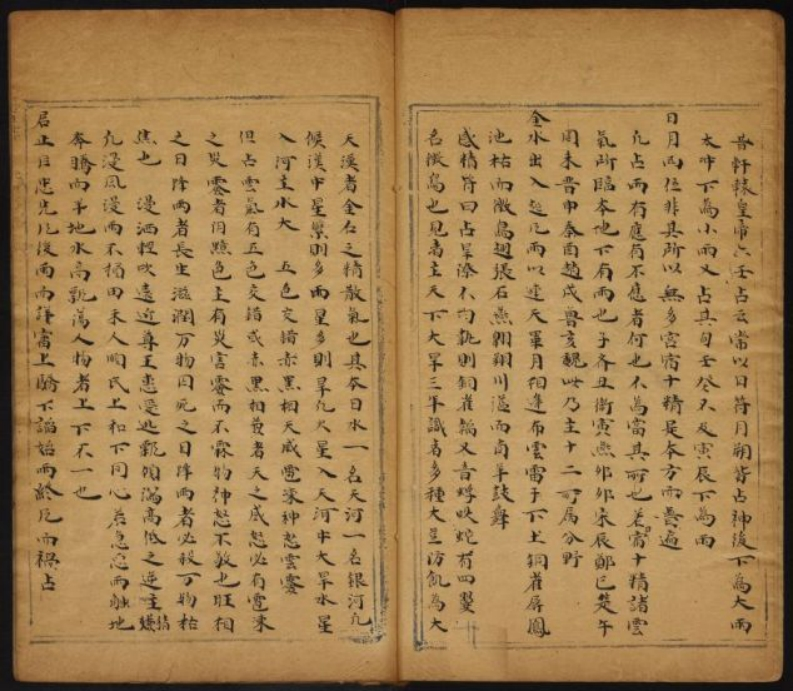 昔軒轅皇帝六壬占云常以日符月朔皆占神後下為大雨
太冲下為小雨又占其旬壬癸不及寅辰下為雨
日月四位非其所以無多宮宿十精是本方而普遍
凡占雨有應有不應者何也不為當其所也若宿十精諸雲
氣所臨本地下有雨也子齊丑衛寅燕卯宋辰鄭巳楚午
周未晋申秦酉趙戌魯亥魏此乃主十二所属分野
金水出入起凡雨以逆天畢月相逢布雲雷于下土銅雀屏鳳
池枯而徵鳥廻張石燕翱翔川溢而商羊鼓舞
感精符曰占旱潦不均孰則銅雀鳴又音蜉蛇有四翼
名徵鳥也見者主天下大旱三年識者多種大豆防飢為大
天漢者金石之精散氣也其本曰水一名天河一名銀河凡
候漢中星繁則多雨星多則旱凡火星入天河中大旱水星
入河主水大 五色交錯赤黑相天威電深神怒雲霎
但占雲氣有五色交錯或赤黑相交者天之威怒必有電深
之災霎者何黑色主有災害霎而不霖物神怒不散也旺相
之日降雨者長生滋潤万物囚死之日降雨者必殺万物枯
焦也 漫洒輕吹遠近尊王恚愛逃甑傾滿高低之逆主嫌猜
凡浸風漫雨不損田禾人間民上和下同心若急忽而觸地
奔騰而平地水高甑蕩人物者上下不一也
君正臣忠先凡後雨雨謹需上驕下諂始雨終凡而禍占